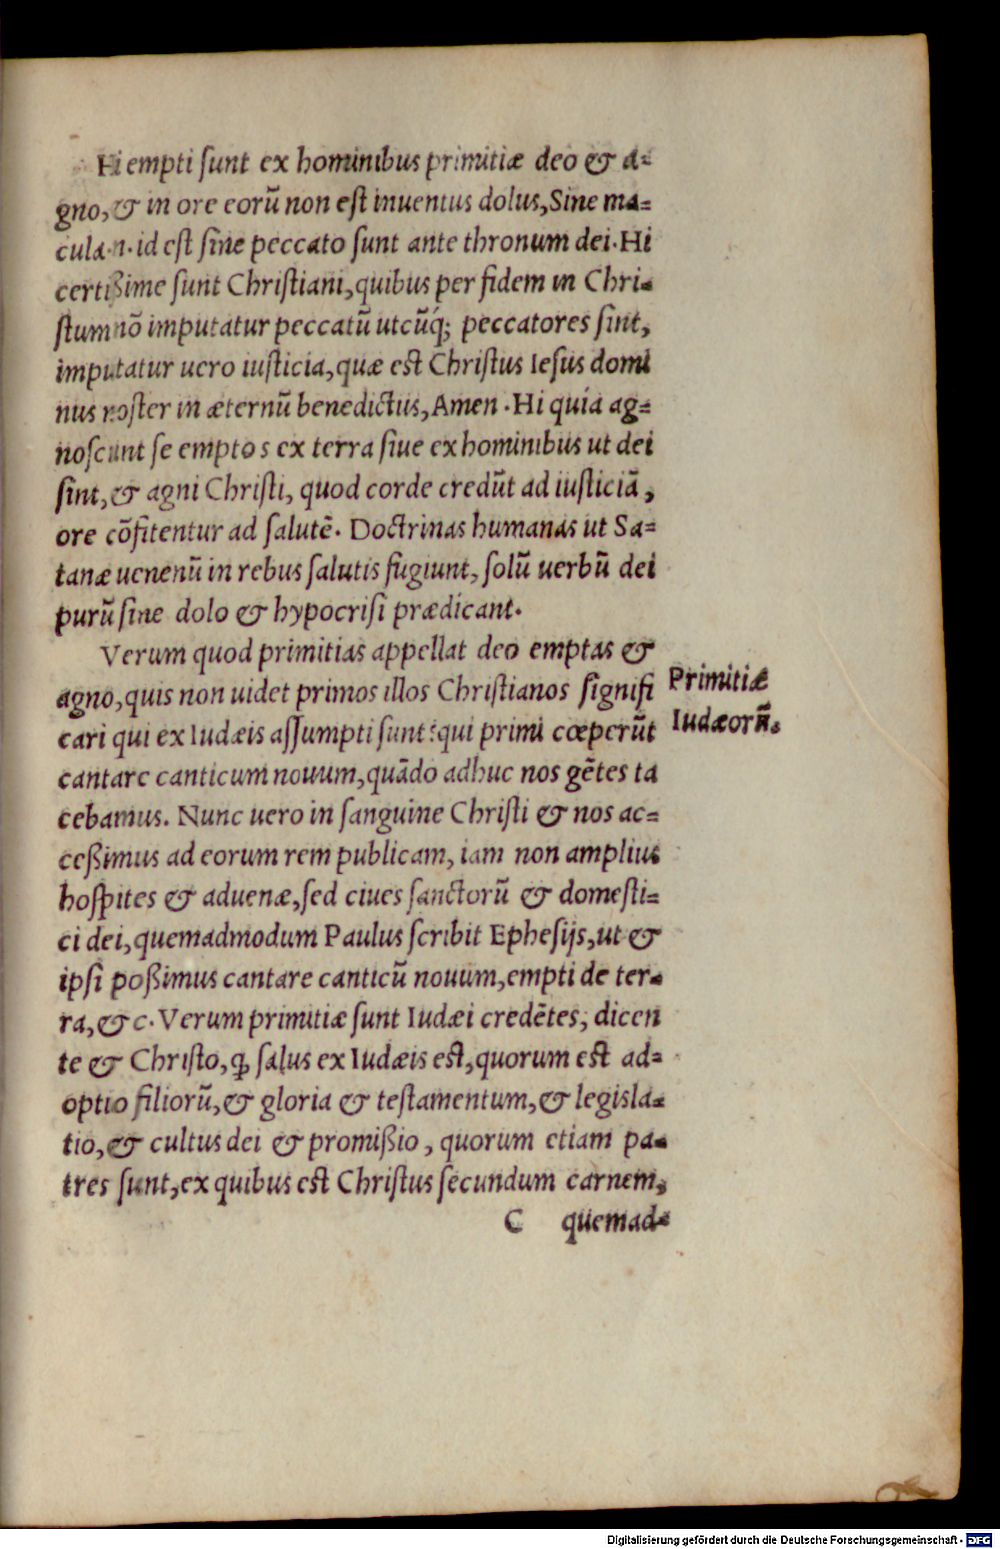 Hi empti sunt ex hominibus primitiæ deo & a=
gno, & in ore eorũ non est inuentus dolus, Sine ma=
cula .n. id est sine peccato sunt ante thronum dei. Hi
certißime sunt Christiani, quibus per fidem in Chri=
stum nõ imputatur peccatũ utcũq; peccatores sint,
imputatur uero iusticia, quæ est Christus Iesus domi
nus noster in æternũ benedictus, Amen. Hi quia ag=
noscunt se emptos ex terra siue ex hominibus ut dei
sint, & agni Christi, quod corde credũt ad iusticiã,
ore cõfitentur ad salutẽ. Doctrinas humanas ut Sa=
tanæ uenenũ in rebus salutis fugiunt, solũ uerbũ dei
purũ sine dolo & hypocrisi prædicant.
Verum quod primitias appellat deo emptas &
agno, quis non uidet primos illos Christianos signifi
cari qui ex Iudæis assumpti sunt: qui primi cœperũt
cantare canticum nouum, quãdo adhuc nos gẽtes ta
cebamus. Nunc uero in sanguine Christi & nos ac=
ceßimus ad eorum rem publicam, iam non amplius
hospites & aduenæ, sed ciues sanctorũ & domesti=
ci dei, quemadmodum Paulus scribit Ephesijs, ut &
ipsi poßimus cantare canticũ nouum, empti de ter=
ra, &c. Verum primitiæ sunt Iudæi credẽtes, dicen
te & Christo, ꝙ salus ex Iudæis est, quorum est ad=
optio filiorũ, & gloria & testamentum, & legisla=
tio, & cultus dei & promißio, quorum etiam pa=
tres sunt, ex quibus est Christus secundum carnem,
C quemad=
Primitiæ
Iudæorũ.
Digitalisierung gefördert durch die Deutsche Forschungsgemeinschaft - DFG